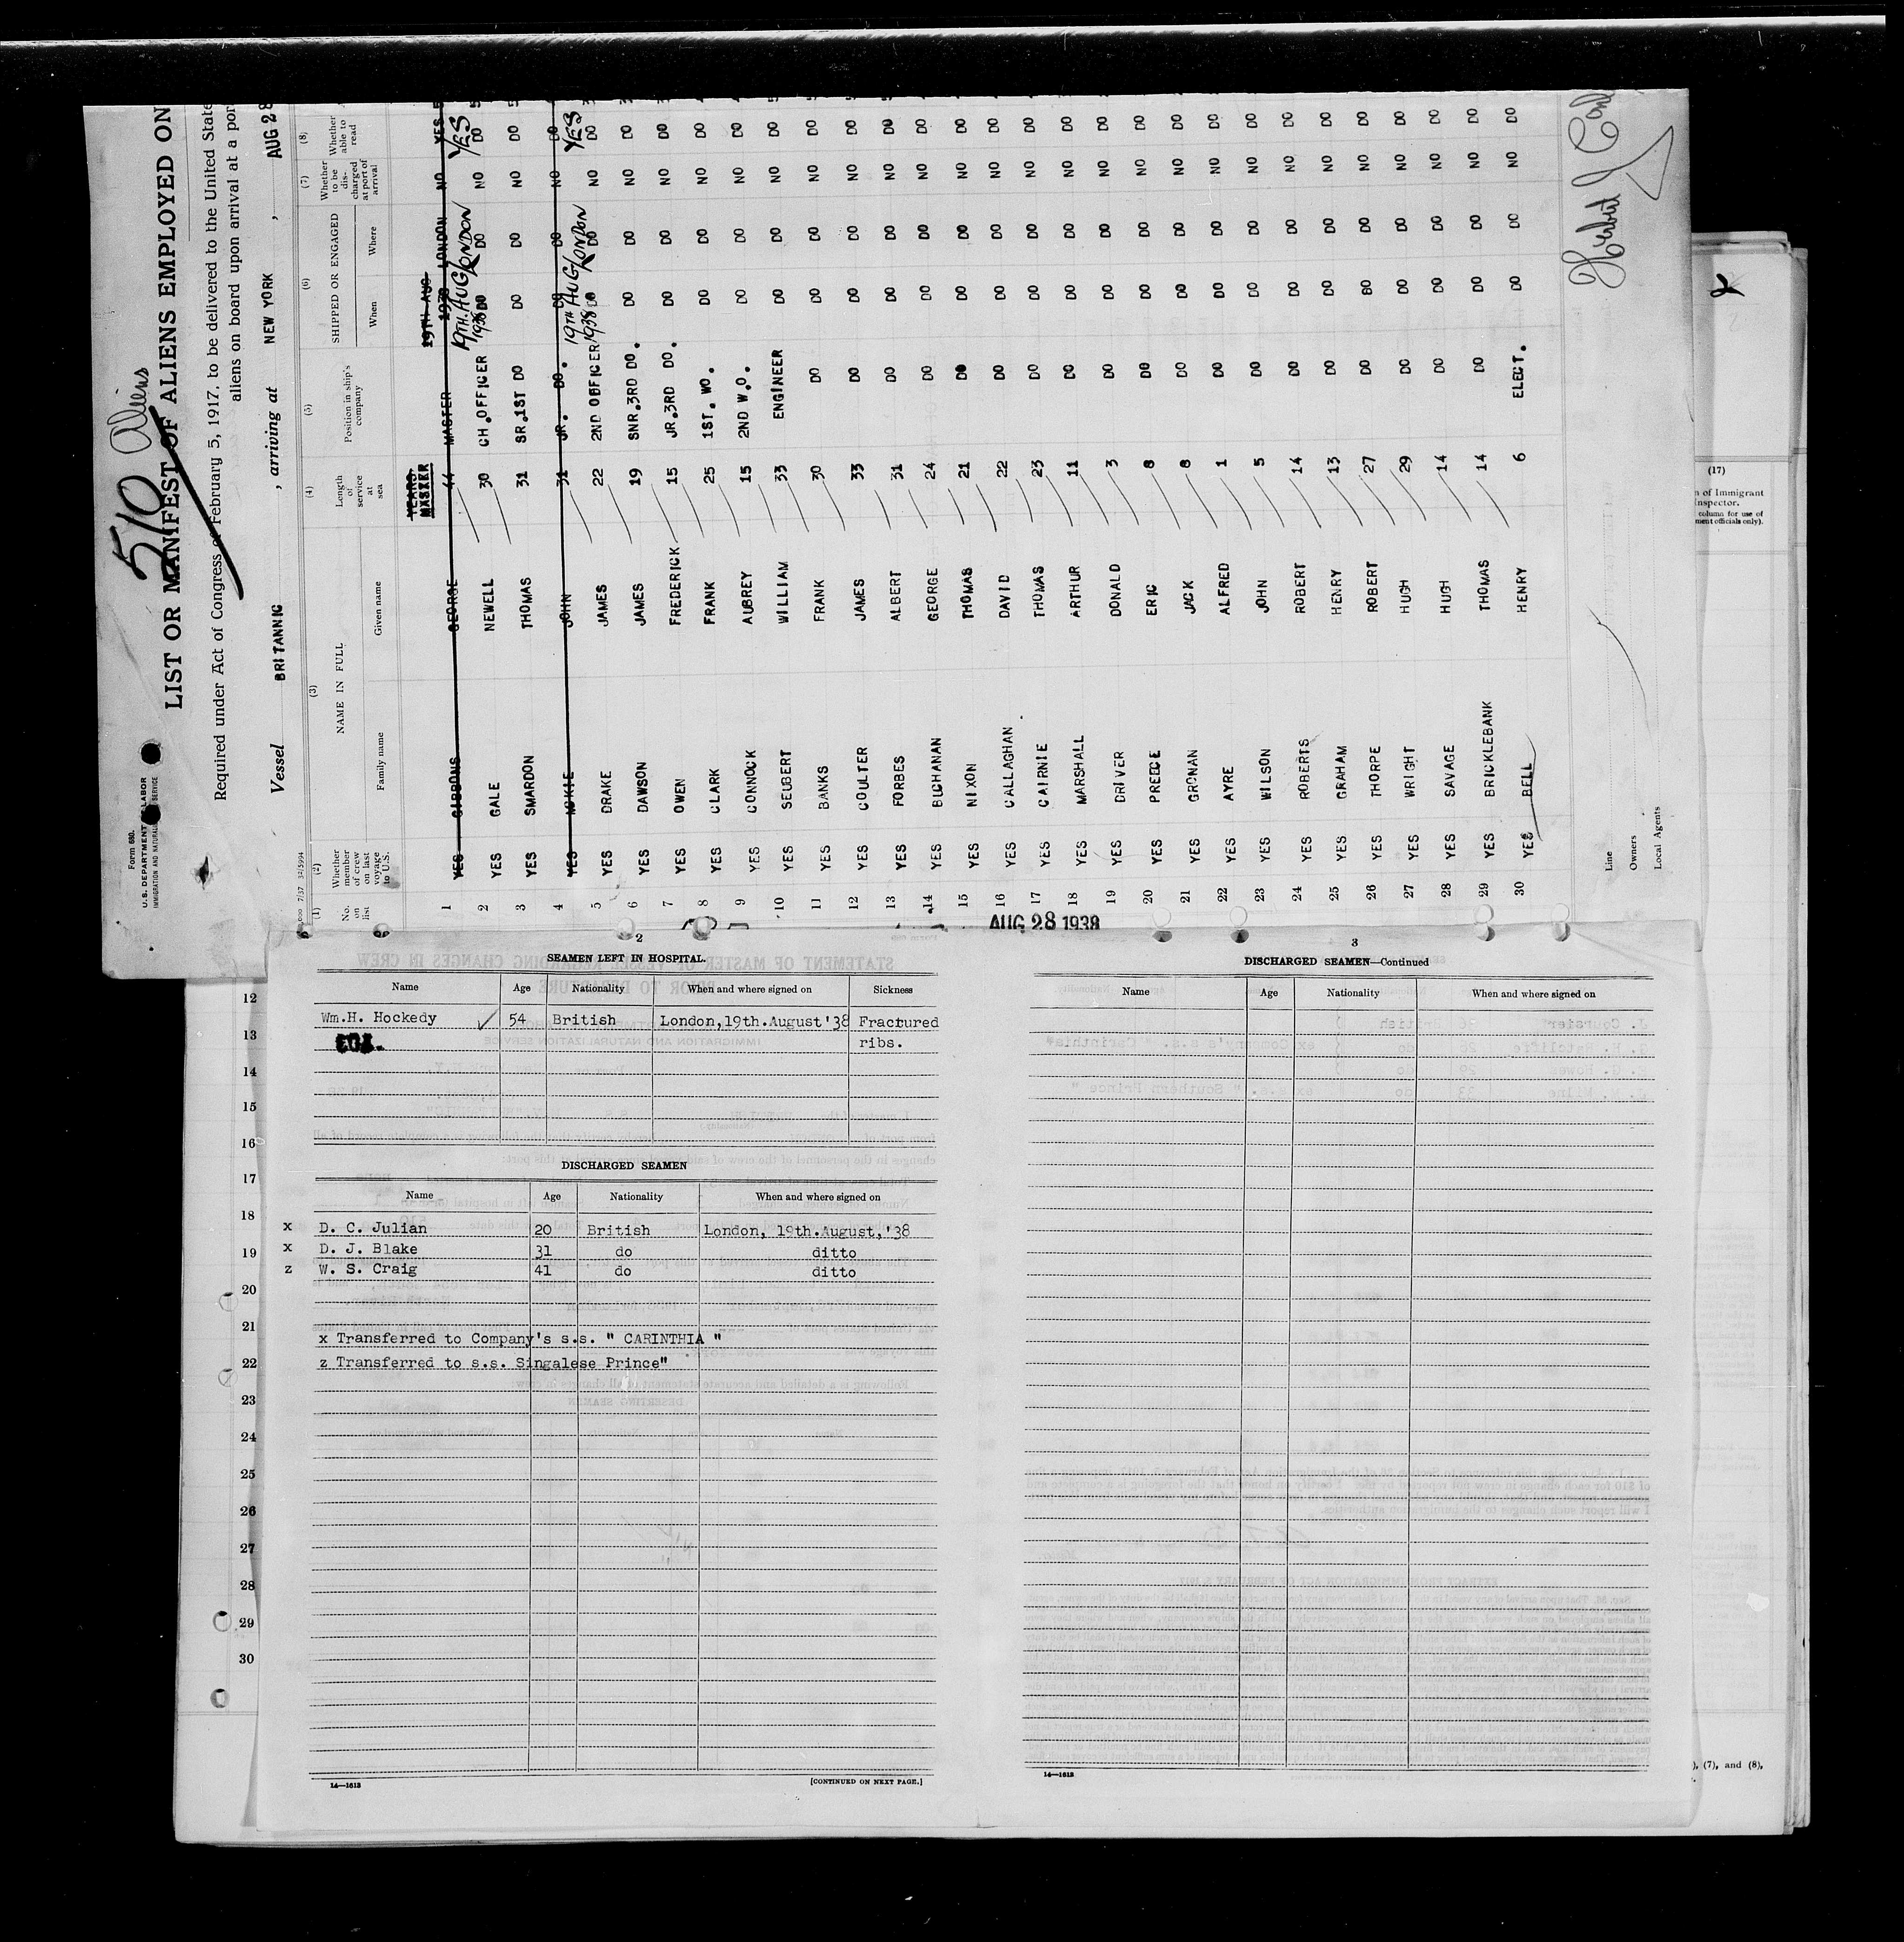 510 Aliens
Form 680.
U.S. DEPARTMENT LABOR
IMMIGRATION AND NATURAL SERVICE
LIST OR MANIFEST OF ALIENS EMPLOYED ON
Required under Act of Congress of February 5, 1917, to be delivered to the United State
aliens on board upon arrival at a por
Vessel BRITANNIC , arriving at NEW YORK , AUG 28
(1) (2) (3) (4) (5) (6) (7) (8)
No. on list Whether member of crew on last voyage to U.S. NAME IN FULL Family name Given name Length of service at sea Position in ship's company SHIPPED OR ENGAGED When Where Whether to be discharged at port of arrival Whether able to read
YEARS 19TH AUG
MASTER
1 YES GIBBONS GEORGE 44 MASTER 1938 LONDON NO YES 5
19TH.AUG 1938 LONDON YES
2 YES GALE NEWELL 30 CH.OFFICER DO DO NO DO
3 YES SMARDON THOMAS 31 SR.1ST DO DO DO NO DO
4 YES MCKIE JOHN 31 JR. DO. DO DO NO DO
19TH AUG 1938 LONDON YES
5 YES DRAKE JAMES 22 2ND OFFICER DO DO NO DO
6 YES DAWSON JAMES 19 SNR.3RD DO. DO DO NO DO
7 YES OWEN FREDERICK 15 JR.3RD DO. DO DO NO DO
8 YES CLARK FRANK 25 1ST. WO. DO DO NO DO
9 YES CONNOCK AUBREY 15 2ND W.O. DO DO NO DO
10 YES SEUBERT WILLIAM 33 ENGINEER DO DO NO DO
11 YES BANKS FRANK 30 DO DO DO NO DO
12 YES COULTER JAMES 33 DO DO DO NO DO
13 YES FORBES ALBERT 31 DO DO DO NO DO
14 YES BUCHANAN GEORGE 24 DO DO DO NO DO
15 YES NIXON THOMAS 21 DO DO DO NO DO
16 YES CALLAGHAN DAVID 22 DO DO DO NO DO
17 YES CAIRNIE THOMAS 23 DO DO DO NO DO
18 YES MARSHALL ARTHUR 11 DO DO DO NO DO
19 YES DRIVER DONALD 3 DO DO DO NO DO
20 YES PREECE ERIC 8 DO DO DO NO DO
21 YES GRONAN JACK 8 DO DO DO NO DO
22 YES AYRE ALFRED 1 DO DO DO NO DO
23 YES WILSON JOHN 5 DO DO DO NO DO
24 YES ROBERTS ROBERT 14 DO DO DO NO DO
25 YES GRAHAM HENRY 13 DO DO DO NO DO
26 YES THORPE ROBERT 27 DO DO DO NO DO
27 YES WRIGHT HUGH 29 DO DO DO NO DO
28 YES SAVAGE HUGH 14 DO DO DO NO DO
29 YES BRICKLEBANK THOMAS 14 DO DO DO NO DO
30 YES BELL HENRY 6 ELECT. DO DO NO DO
Line
Owners
Local Agents
Herbert J
AUG 28 1938
2
SEAMEN LEFT IN HOSPITAL.
Name Age Nationality When and where signed on Sickness
Wm.H. Hockedy 54 British London,19th.August'38 Fractured
ribs.
DISCHARGED SEAMEN
Name Age Nationality When and where signed on
x D. C. Julian 20 British London, 19th.August,'38
x D. J. Blake 31 do ditto
z W. S. Craig 41 do ditto
x Transferred to Company's s.s. " CARINTHIA "
z Transferred to s.s. Singalese Prince"
14—1613
[CONTINUED ON NEXT PAGE.]
3
DISCHARGED SEAMEN—Continued
Name Age Nationality When and where signed on
14—1613
12
13
14
15
16
17
18
19
20
21
22
23
24
25
26
27
28
29
30
2
(17)
n of Immigrant
nspector.
column for use of
ment officials only).
), (7), and (8),